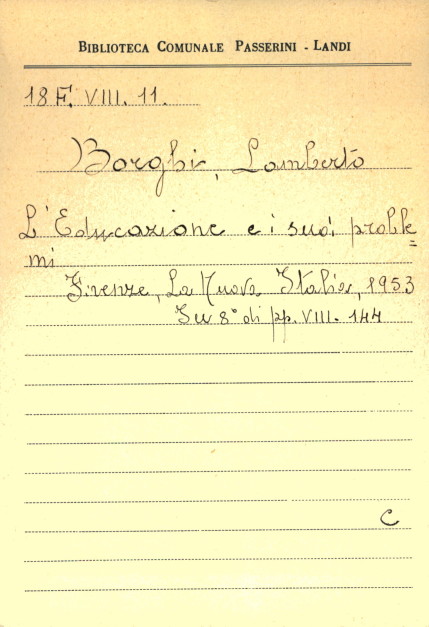 BIBLIOTECA COMUNALE PASSERINI - LANDI
18 F. VIII. 11.
Borghi, Lamberto
L'Educazione e i suoi proble=
mi
Firenze, La Nuova Italia, 1953
In 8° di pp. VIII. 144
C